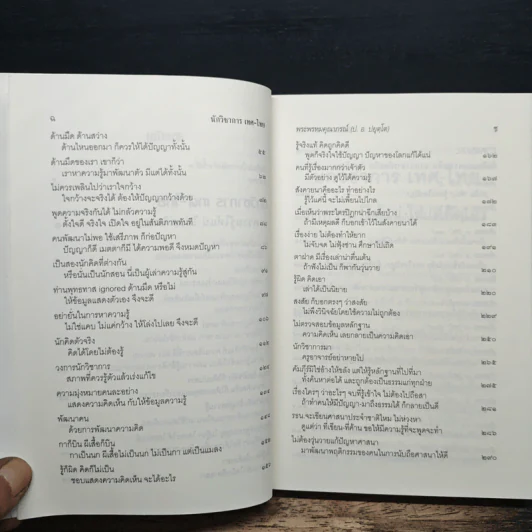 ฉ
นักวิชาการ เทศ-ไทย
ด้านมืด ด้านสว่าง
ด้านไหนออกมา ก็ควรให้ได้ปัญญาทั้งนั้น
ด้านมืดของเรา เขาก็ว่า
เราหาความรู้มาพัฒนาตัว มีแต่ได้ทั้งนั้น
ไม่ควรเพลินไปว่าเราใจกว้าง
ใจกว้างจะจริงได้ ต้องให้ปัญญากว้างด้วย
พูดความจริงกันได้ ไม่กลัวความรู้
ตั้งใจดี จริงใจ เปิดใจ อยู่ในสันติภาพทันที
คนพัฒนาไม่พอ ใช้เสรีภาพ ก็ก่อปัญหา
ปัญญาก็ดี เมตตาก็มี ได้ความพอดี จึงหมดปัญหา
เป็นสองนักคิดที่ต่างกัน
หรือนั่นเป็นนักสอน นี่เป็นผู้เล่าความรู้สู่กัน
ท่านพุทธทาส ignored ด้านมืด หรือไม่
ให้ข้อมูลแสดงตัวเอง จึงจะดี
อย่ายั่นในการหาความรู้
ไม่ใช่แคบ ไม่แค่กว้าง ให้โล่งไปเลย จึงจะดี
นักคิดตัวจริง
คิดได้โดยไม่ต้องรู้
วงการนักวิชาการ
สภาพที่ควรรู้ตัวแล้วเร่งแก้ไข
ความมุ่งหมายคนละอย่าง
แสดงความคิดเห็น กับให้ข้อมูลความรู้
พัฒนาคน
ด้วยการพัฒนาความคิด
กาก็บิน ผีเสื้อก็บิน
กาเป็นนก ผีเสื้อไม่เป็นนก ไม่เป็นกา แต่เป็นแมลง
รู้ก็ผิด คิดก็ไม่เป็น
ชอบแสดงความคิดเห็น จะได้อะไร
พระพรหมคุณาภรณ์ (ป. อ. ปยุตฺโต)
รู้จริงแท้ คิดถูกคิดดี
พูดก็จริงใจใช้ปัญญา ปัญหาของโลกแก้ได้แน่
คนที่รู้เรื่องมากกว่าเจ้าตัว
มีตัวอย่าง ดูไว้ได้ความรู้
สังคายนาคืออะไร ทำอย่างไร
รู้ไว้แค่นี้ จะไม่เพี้ยนไปไกล
เมื่อเห็นว่าพระไตรปิฎกน่าฉีกเสียบ้าง
ถ้ามีเหตุผลดี ก็บอกไว้ในสังคายนาได้
เรื่องง่าย ไม่ต้องทำให้ยาก
ไม่จับจด ไม่ฟุ้งซ่าน ศึกษาไปเถิด
ถ้าฟังไม่เป็น ก็พากันวุ่นวาย
รู้ผิด คิดเอา
เล่าได้เป็นนิยาย
สงสัย ก็บอกตรงๆ ว่าสงสัย
ไม่พึงวินิจฉัยโดยใช้ความไม่ถูกต้อง
ไม่ตรวจสอบข้อมูลหลักฐาน
ความคิดเห็น เลยกลายเป็นความคิดเอา
นักวิชาการมา
ครูอาจารย์อย่าหายไป
คัมภีร์มีใช้อ้างให้ขลัง แต่ให้รู้หลักฐานที่ไปที่มา
เรื่องใครๆ ว่าอะไรๆ จบที่รู้เข้าใจ ไม่ต้องไปถือสา
ไม่ต้องวุ่นวายแก้ปัญหาศาสนา
มาพัฒนาพฤติกรรมของคนในการนับถือศาสนาให้ดี